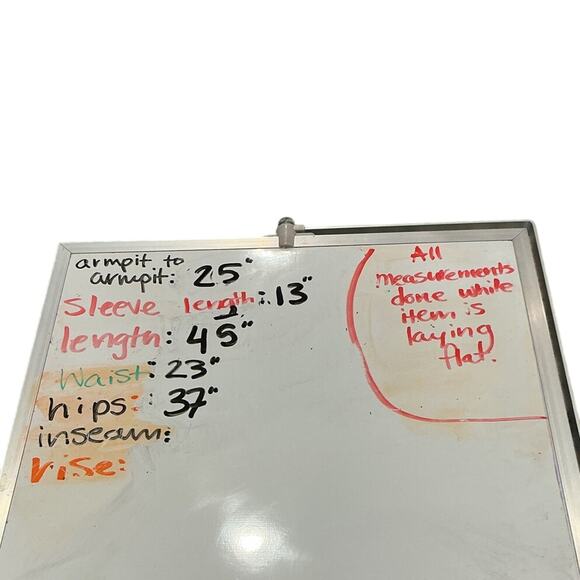 armpit to
armpit: 25"
Sleeve length: 13"
length: 45"
Waist: 23"
hips: 37"
inseam:
rise:
All
measurements
done while
item is
laying
flat.